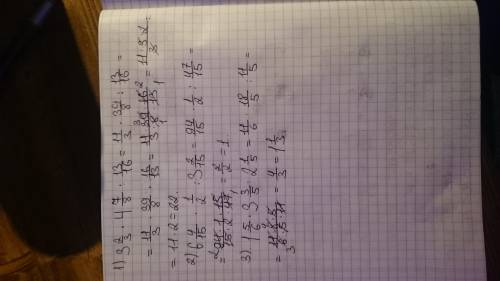 1) 3 2/3 · 4 7/8 : 13/16 = 11/3 · 39/8 : 13/16 =
= 11/3 · 39/8 · 16/13 = 11·39·16/3·8·13 = 11·3·2/3 =
= 11·2 = 22
2) 6 4/15 · 1/2 : 3 2/15 = 94/15 · 1/2 : 47/15 =
= 94·1·15/15·2·47 = 2/2 = 1.
3) 1 5/6 : 3 3/5 · 2 1/5 = 11/6 · 18/5 : 11/5 =
= 4/3 = 1 1/3.